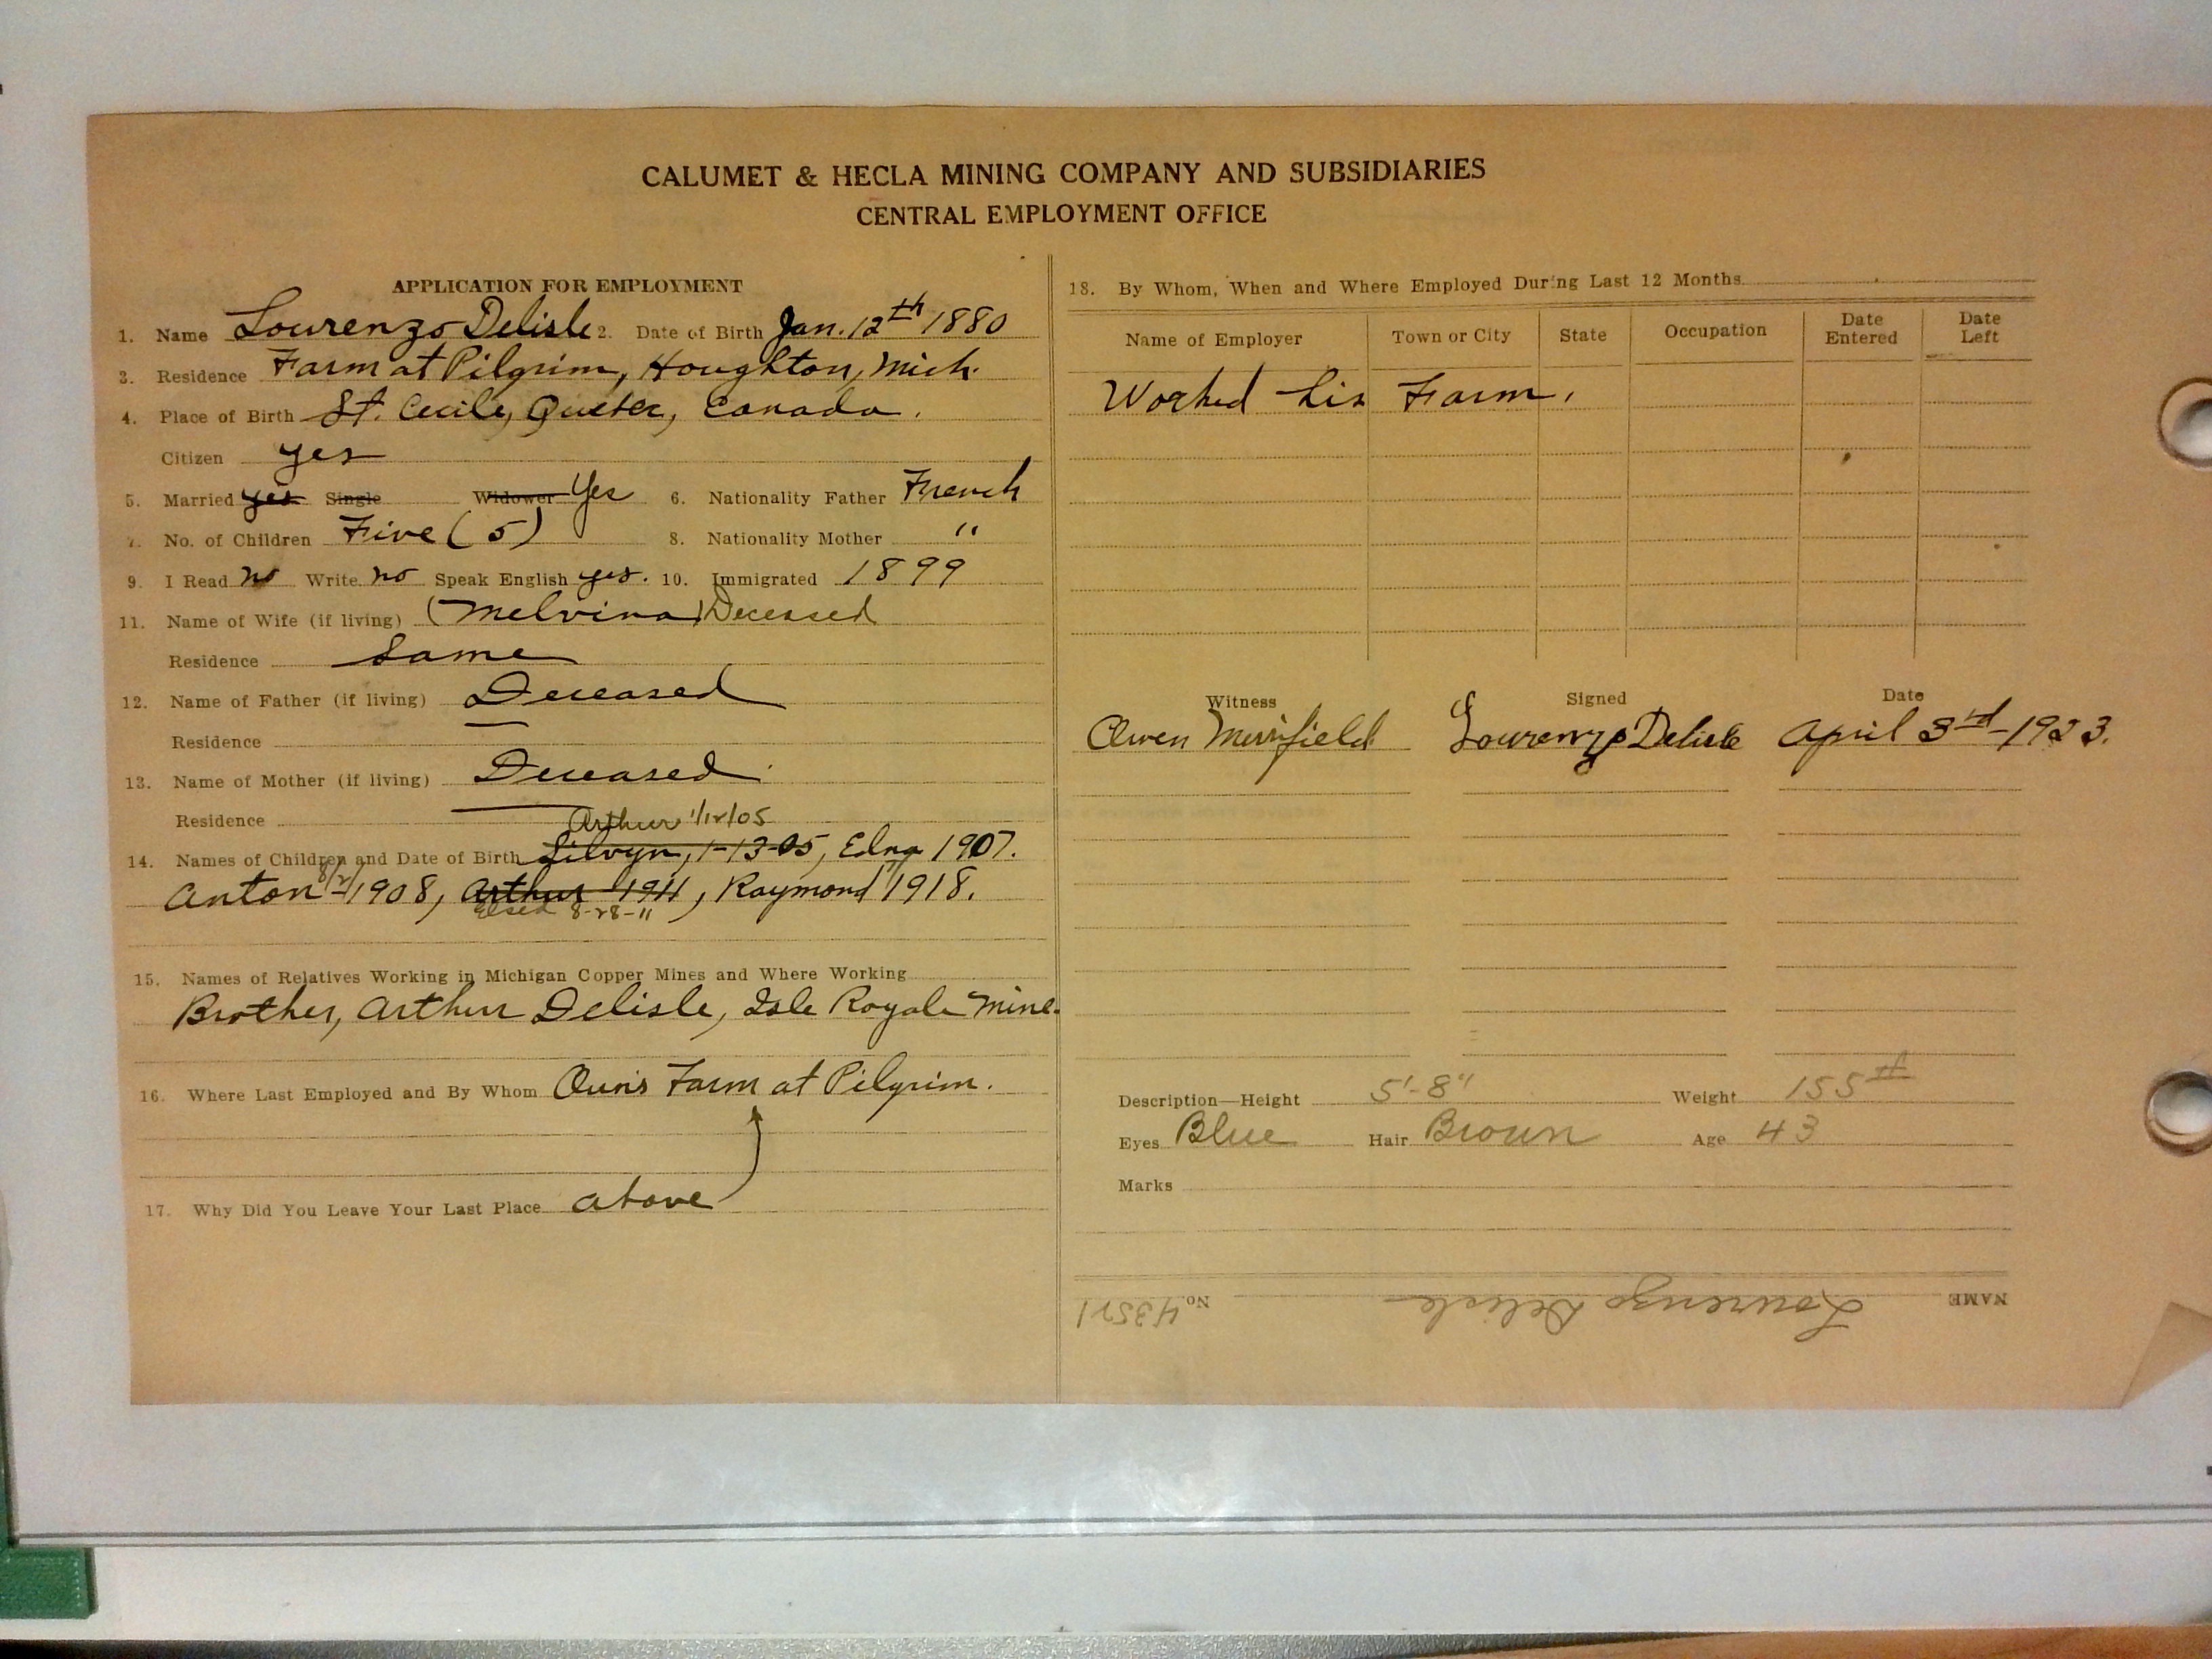 CALUMET & HECLA MINING COMPANY AND SUBSIDIARIES
CENTRAL EMPLOYMENT OFFICE
APPLICATION FOR EMPLOYMENT
1. Name Lourenzo Delisle 2. Date of Birth Jan. 12th 1880
3. Residence Farm at Pilgrim, Houghton, Mich.
4. Place of Birth St. Cecile, Quebec, Canada.
Citizen yes
5. Married yes Single Widower Yes 6. Nationality Father French
7. No. of Children Five (5) 8. Nationality Mother "
9. I Read no Write no Speak English yes. 10. Immigrated 1899
11. Name of Wife (if living) (Melvina) Deceased
Residence Same
12. Name of Father (if living) Deceased
Residence —
13. Name of Mother (if living) Deceased
Residence —
Arthur 1/12/05
14. Names of Children and Date of Birth 1-13-05, Edna 1907.
8/2/
Anton - 1908, Arthur 1911, Raymond 1918.
8-28-11
15. Names of Relatives Working in Michigan Copper Mines and Where Working
Brother, Arthur Delisle, Isle Royale Mine.
16. Where Last Employed and By Whom Owns Farm at Pilgrim.
17. Why Did You Leave Your Last Place above
18. By Whom, When and Where Employed During Last 12 Months
Name of Employer Town or City State Occupation Date Entered Date Left
Worked his Farm.
Witness Signed Date
Owen Merrifield Lourenzo Delisle April 3rd - 1923.
Description—Height 5'-8" Weight 155#
Eyes Blue Hair Brown Age 43
Marks
NAME Lourenzo Delisle No. 43521